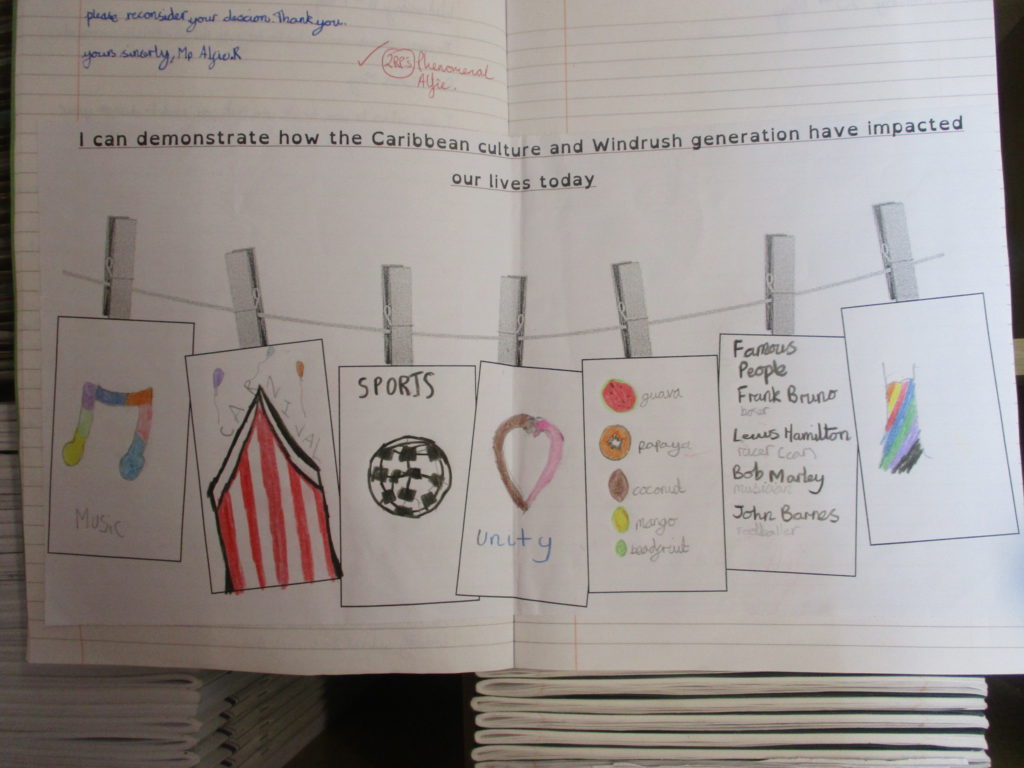 please reconsider your descion. Thank you.
yours sincerly, Mr Alfie.R
Phenomenal
Alfie.
I can demonstrate how the Caribbean culture and Windrush generation have impacted
our lives today
MUSIC
CARNIVAL
SPORTS
unity
guava
papaya
coconut
mango
Famous
People
Frank Bruno
boxer
Lewis Hamilton
racer
Bob Marley
musician
John Barnes
footballer